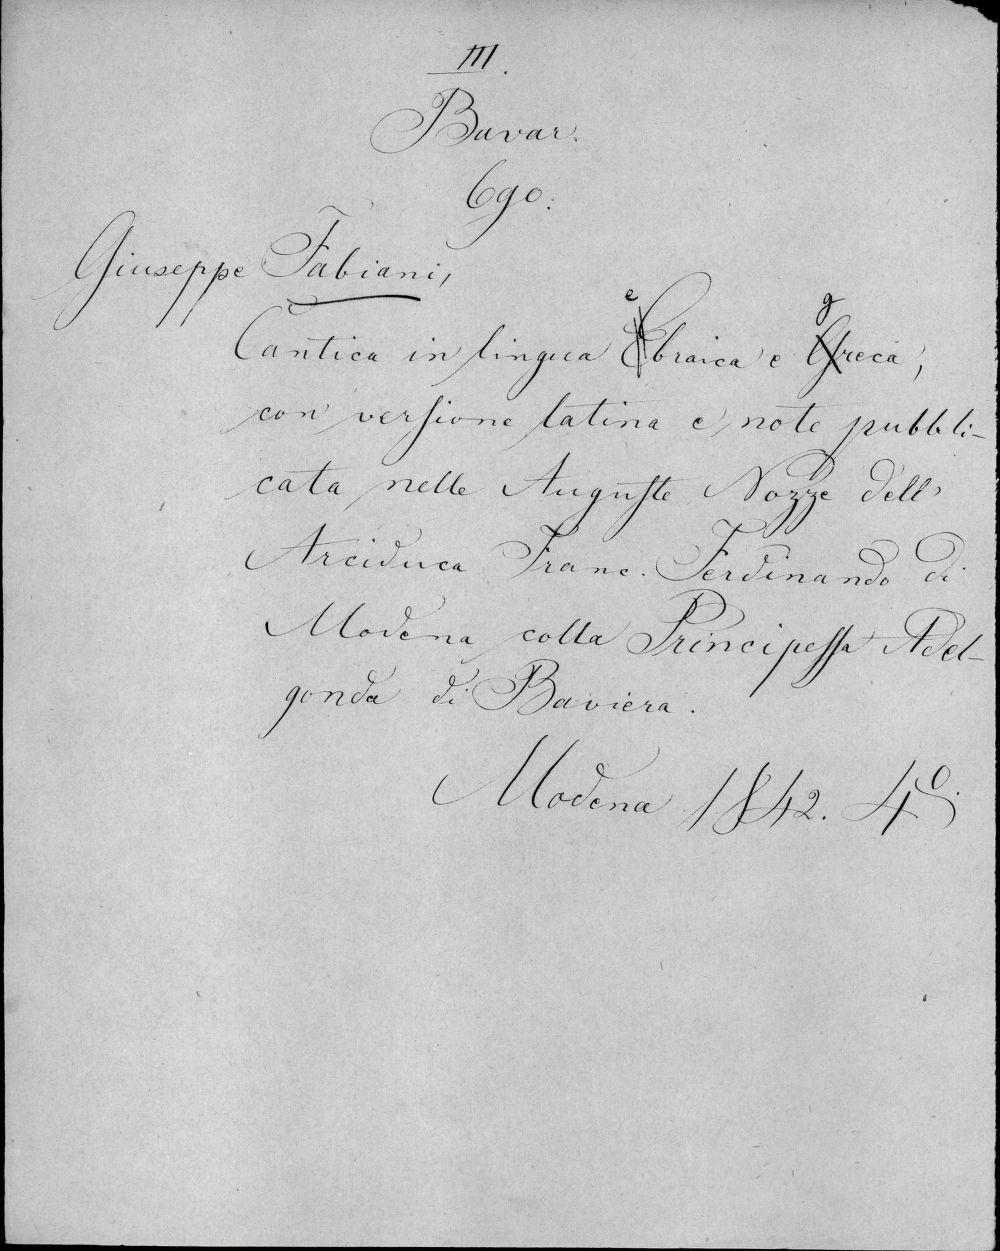 III.
Bavar.
690.
Giuseppe Fabiani,
Cantica in lingua ebraica e greca,
con versione latina e note pubbli-
cata nelle Auguste Nozze dell'
Arciduca Franc. Ferdinando di
Modena colla Principessa Adel-
gonda di Baviera.
Modena 1842. 4º.